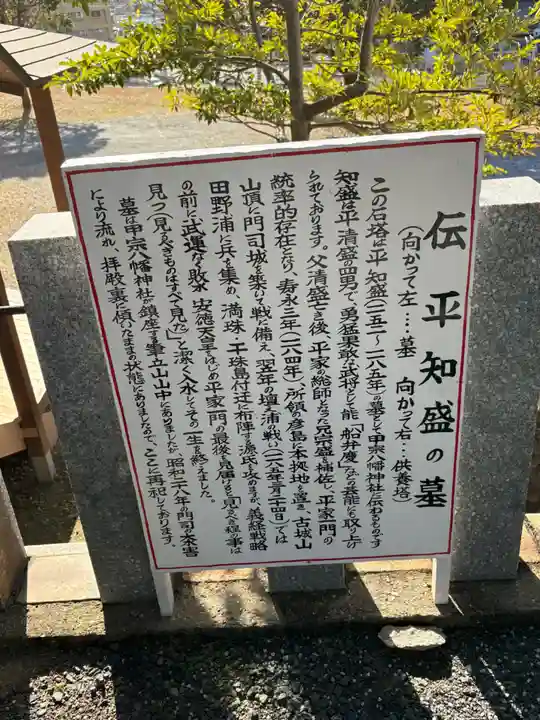 伝 平知盛の墓
(向かって左…墓 向かって右…供養塔)
この石塔は平知盛(一一五一〜一一八五年)の墓として甲宗八幡神社に伝わるものです
知盛は平清盛の四男で、勇猛果敢な武将として能「船弁慶」などの芸能にも取り上げ
られております。父清盛亡き後、平家の総師となった兄宗盛を補佐し、平家一門の
統率的存在となり、寿永三年(一一八四年)、所領の彦島を本拠地を置き、古城山
山頂に門司城を築いて戦に備え、翌年の壇之浦の戦い(一一八五年三月二四日)では
田野浦に兵を集め、満珠・干珠島付近に布陣する源氏を攻めますが、義経の戦略
の前に武運なく敗れ、安徳天皇をはじめ平家一門の最後を見届けると「見るべき程の事は
見つ(見るべきものはすべて見た)」と潔く入水してその一生を終えました。
墓は甲宗八幡神社が鎮座する筆立山山中にありましたが、昭和二八年の門司大水害
により流れ、拝殿裏に傾いたままの状態にありましたので、ここに再祀しております。